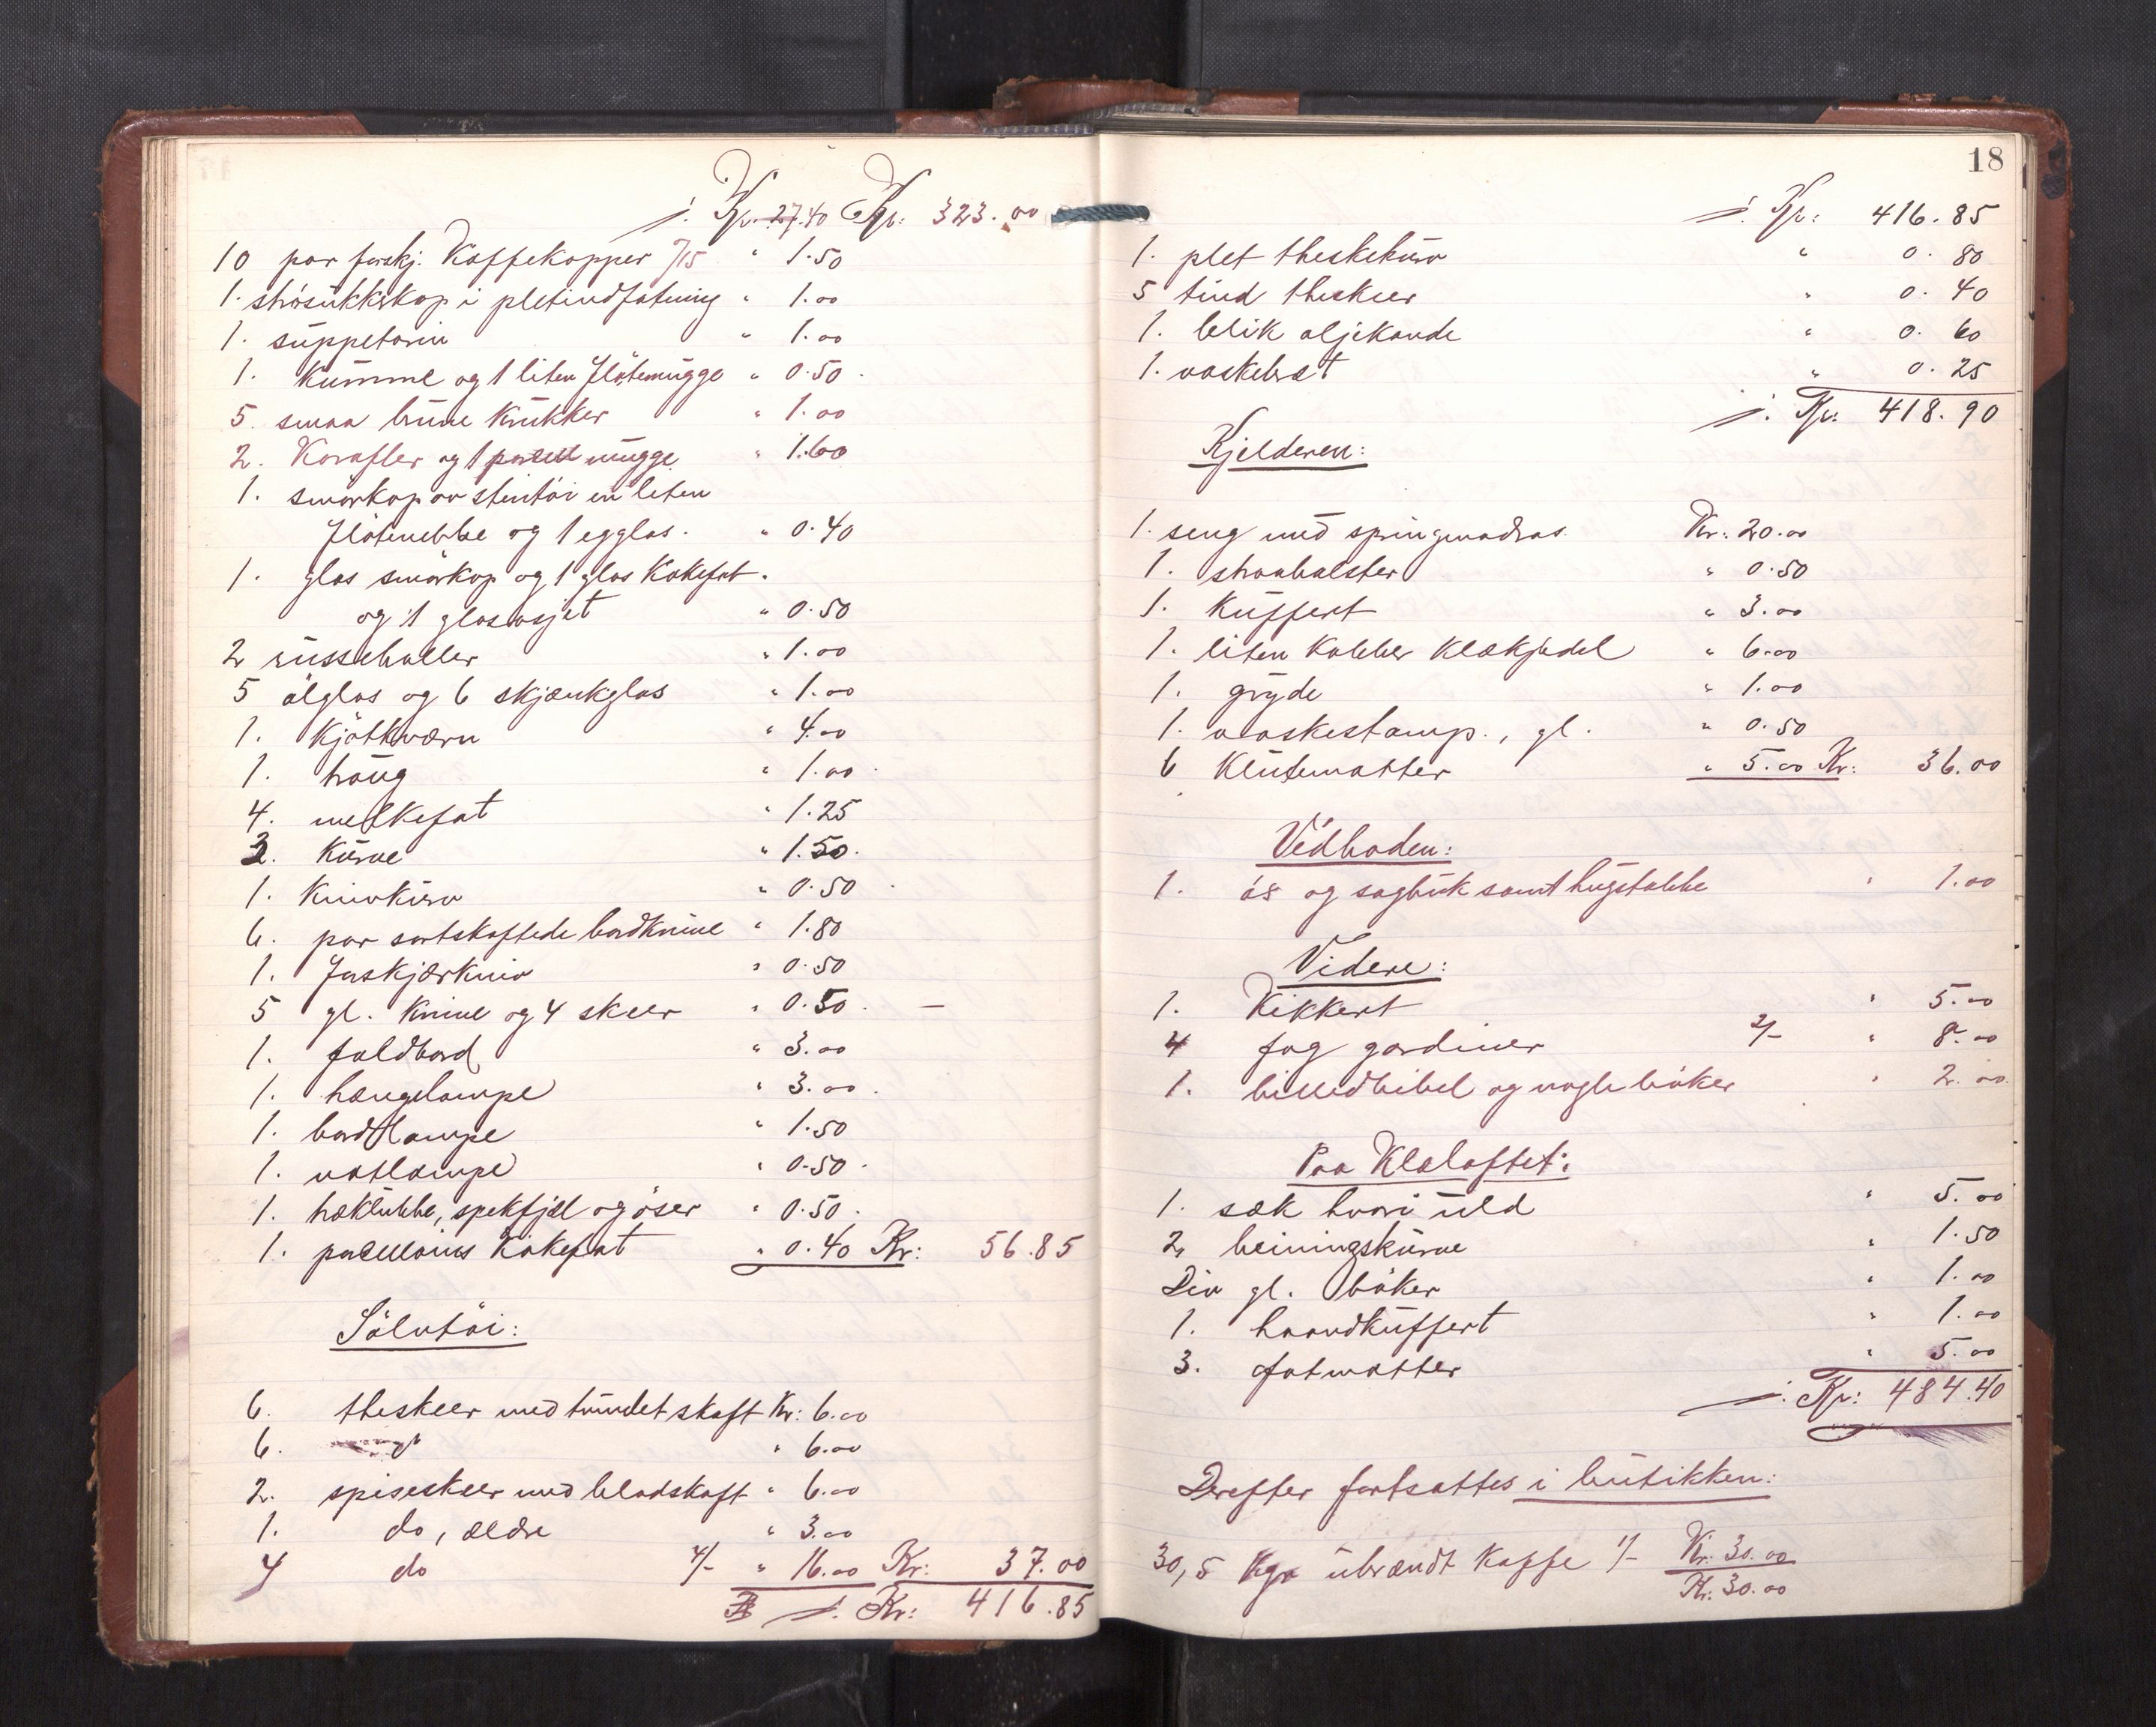 /. Kr. 27.40 Kr: 323.00
10 par forskj. Kaffekopper 7/15 " 1.50
1. strøsukkerkop i pletindfatning " 1.00
1. suppeterin " 1.00
1. Kumme og 1 liten fløtemugge " 0.50
5. smaa brune krukker " 1.00
2. Karafler og 1 porcell mugge " 1.60
1. smørkop av stentøi en liten
fløtenebbe og 1 egglas. " 0.40
1. glas smørkop og 1 glas Kakefat.
og 1 glasasjet " 0.50
2 russeboller " 1.00
5 ølglas og 6 skjænkglas " 1.00
1. Kjøtkværn " 4.00
1. traug " 1.00
4. melkefat " 1.25
3. Kurve " 1.50.
1. Knivkurv " 0.50
6. par sortskaftede bordknive " 1.80
1. Forskjærkniv " 0.50
5 gl. Knive og 4 skeer " 0.50. —
1. foldbord " 3.00
1. hængelampe " 3.00.
1. bordlampe " 1.50
1. natlampe " 0.50.
1. træklubbe, spekfjæl og øser " 0.50.
1. porcellains Kakefat " 0.40 Kr: 56.85
Sølvtøi:
6. theskeer med tvundet skaft Kr: 6.00
6. do " 6.00
2. spiseskeer med bladskaft " 6.00
1. do, ældre " 3.00
4 do 4/- " 16.00 Kr: 37.00
/. Kr: 416.85
18
/. Kr: 416.85
1. plet theskekurv " 0.80
5 tind theskeer " 0.40
1. blik oljekande " 0.60
1. vaskebræt " 0.25
/. Kr: 418.90
Kjelderen:
1. seng med springmadras. Kr: 20.00
1. straabolster " 0.50
1. Kuffert " 3.00
1. liten Kobber Klækjedel " 6.00
1. gryde " 1.00
1. vaskestamp., gl. " 0.50
6 Klutematter " 5.00 Kr: 36.00
Vedboden:
1. øs og sagbuk samt hugstabbe " 1.00
Videre:
1. Kikkert " 5.00
4 fag gardiner 2/- " 8.00
1. billedbibel og nogle bøker " 2.00.
Paa Klæloftet:
1. sæk hvori uld " 5.00
2 beiningskurve " 1.50
Div gl. bøker " 1.00
1. haandkuffert " 1.00
3. fotmatter " 5.00
/. Kr: 484.40
Derefter fortsattes i butikken:
30,5 Kgr ubrændt Kaffe 1/- Kr. 30.00
Kr. 30.00